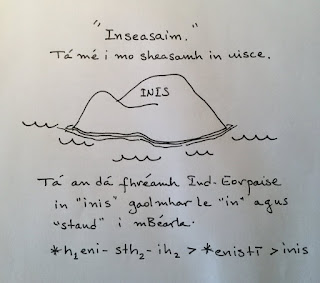 "Inseasaim."
Tá mé i mo sheasamh in uisce.
INIS
Tá an dá fhréamh Ind-Eorpaise
in "inis" gaolmhar le "in" agus
"stand" i mBéarla.
*h₁eni-sth₂-ih₂ > *enistī > inis